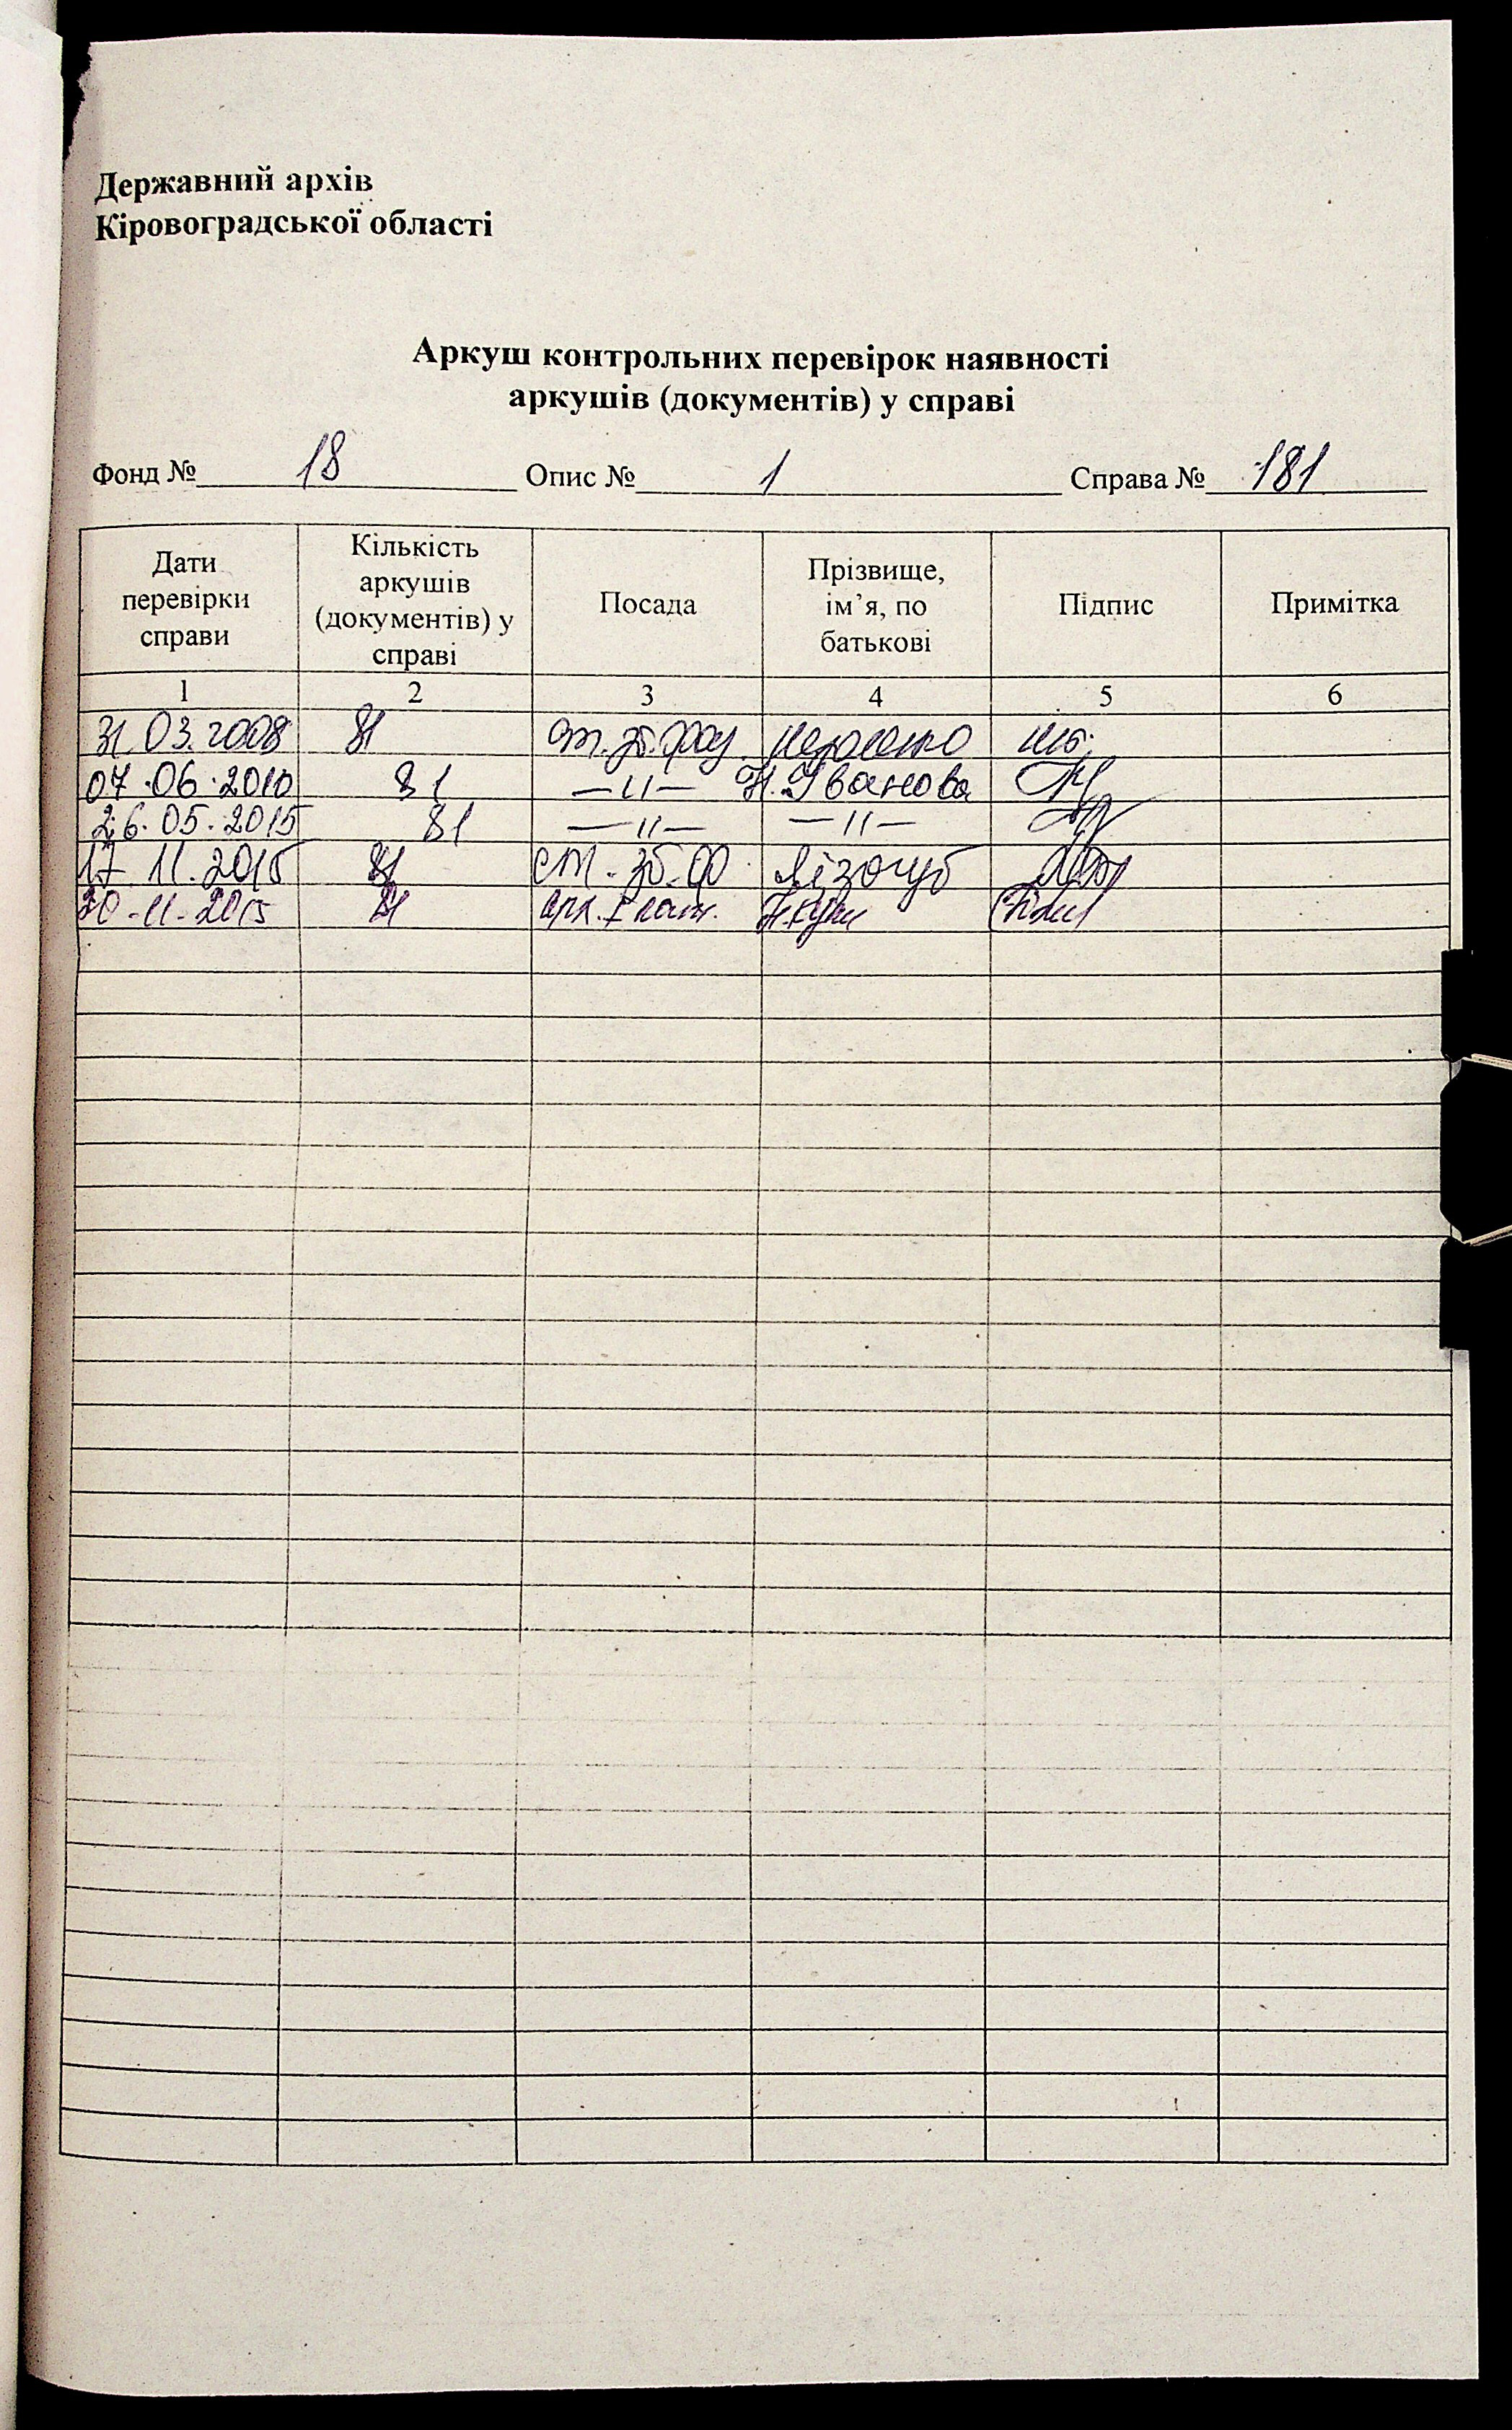 Державний архів
Кіровоградської області
Аркуш контрольних перевірок наявності
аркушів (документів) у справі
Фонд № 18 Опис № 1 Справа № 181
Дати перевірки справи
Кількість аркушів (документів) у справі
Посада
Прізвище, ім’я, по батькові
Підпис
Примітка
1 2 3 4 5 6
31.03.2008 81
07.06.2010 81 —〃— Н. Іванова
26.05.2015 81 —〃— —〃—
17.11.2015 81 ст. зб. ф. Лізогуб
20-11-2015 81